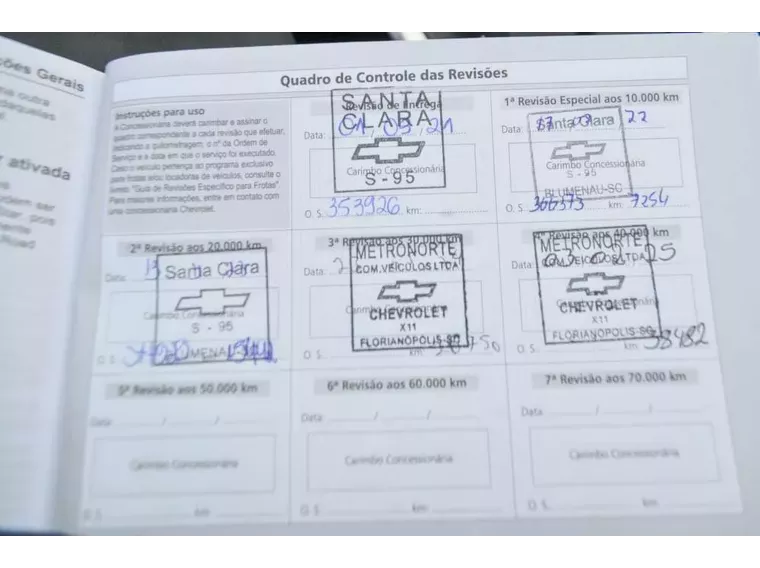 ções Gerais
Quadro de Controle das Revisões
Instruções para uso
A Concessionária deverá carimbar e assinar o
quadro correspondente a cada revisão que efetuar,
indicando a quilometragem, o nº da Ordem de
Serviço e a data em que o serviço foi executado.
Caso o veículo pertença ao programa exclusivo
para frotas e/ou locadoras de veículos, consulte o
"Guia de Revisões Específico para Frotas".
Para maiores informações, entre em contato com
uma concessionária Chevrolet.
Revisão de Entrega
SANTA
CLARA
Data: 01/09/21
Carimbo Concessionária
S - 95
O. S. 353926 km:
1ª Revisão Especial aos 10.000 km
Santa Clara
Data: / / 22
Carimbo Concessionária
S - 95
BLUMENAU-SC
O. S. 366373 km: 7254
2ª Revisão aos 20.000 km
Data: 13
Santa Clara
Carimbo Concessionária
S - 95
O. S.
3ª Revisão aos 30.000 km
METRONORTE
COM.VEÍCULOS LTDA
Data:
CHEVROLET
X11
FLORIANÓPOLIS-SC
km:
4ª Revisão aos 40.000 km
METRONORTE
COM.VEÍCULOS LTDA
Data: 25
CHEVROLET
X11
FLORIANÓPOLIS-SC
O. S. km: 38482
5ª Revisão aos 50.000 km
Data / /
Carimbo Concessionária
O. S. km
6ª Revisão aos 60.000 km
Data / /
Carimbo Concessionária
O. S. km
7ª Revisão aos 70.000 km
Data / /
Carimbo Concessionária
O. S. km